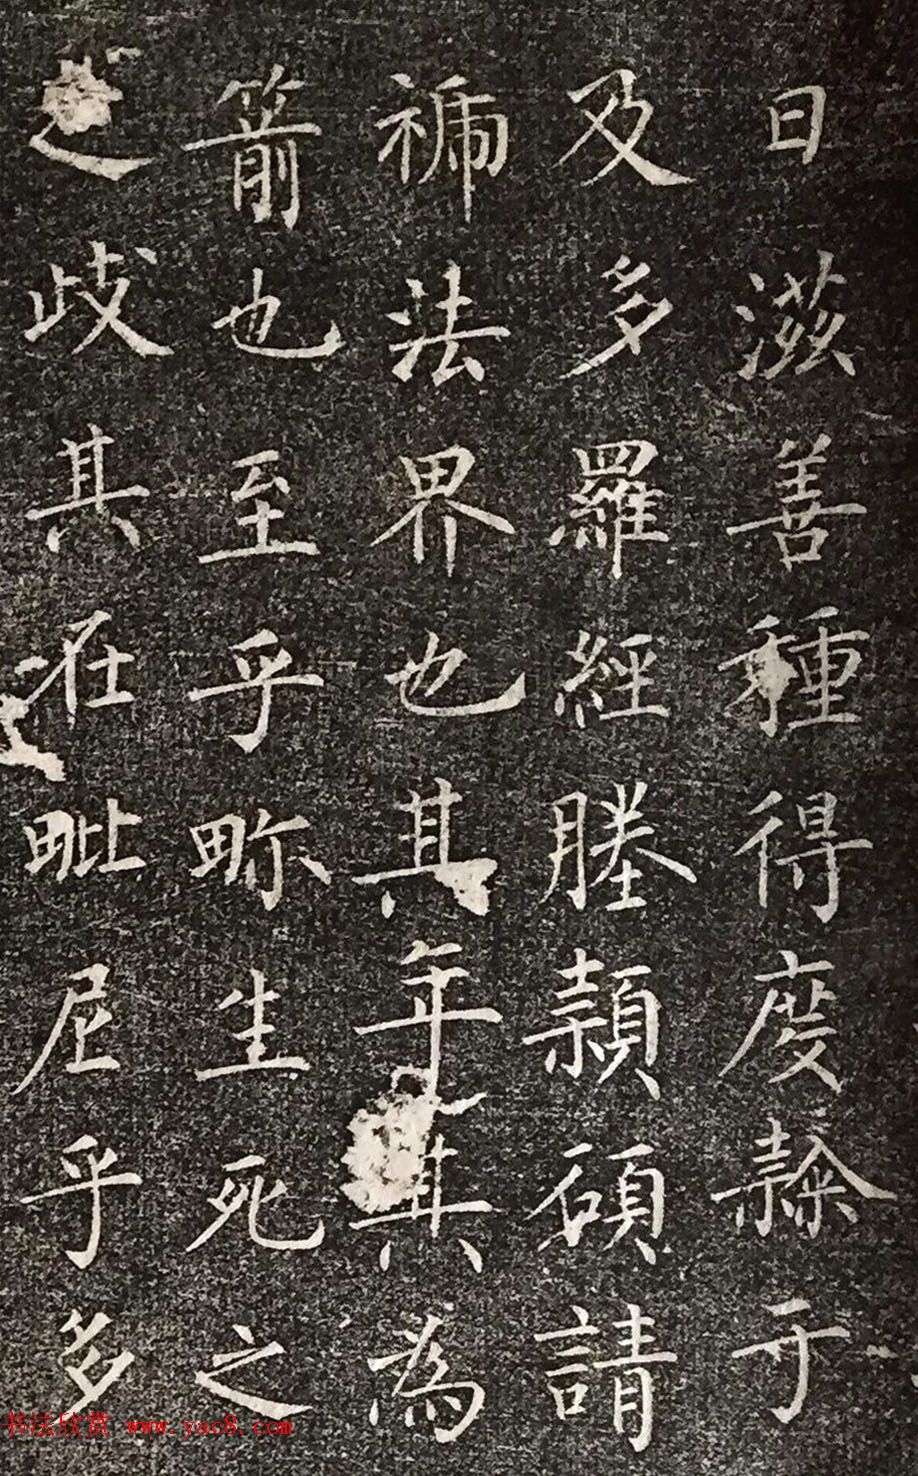 日滋善種得度隸于
及多羅經塍碩請
褫法界也其年其為
箭也至乎畛生死之
歧其在毗尼乎多
书法欣赏 www.yac8.com